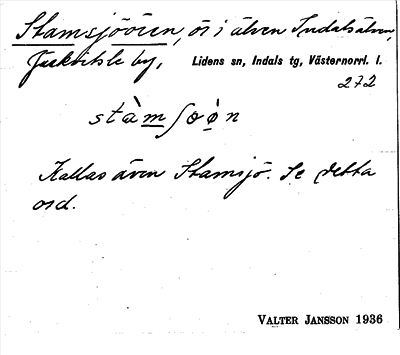 Stamsjöören, ör i älven Indalsälven,
by, Lidens sn, Indals tg, Västernorrl. l.
272
stàmʃoø̀n
Kallas även Stamsjö. Se detta
ord.
VALTER JANSSON 1936